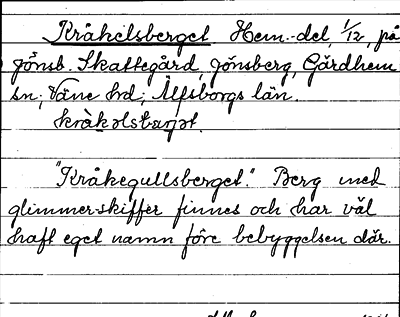 Kråkelsberget Hem.-del, 1/12, på
Jönsb. Skattegård, Jönsberg, Gärdhem
sn; Väne hd; Älfsborgs län.
"Kråkegullsberget." Berg med
glimmer-skiffer finnes och har väl
haft eget namn före bebyggelsen där.